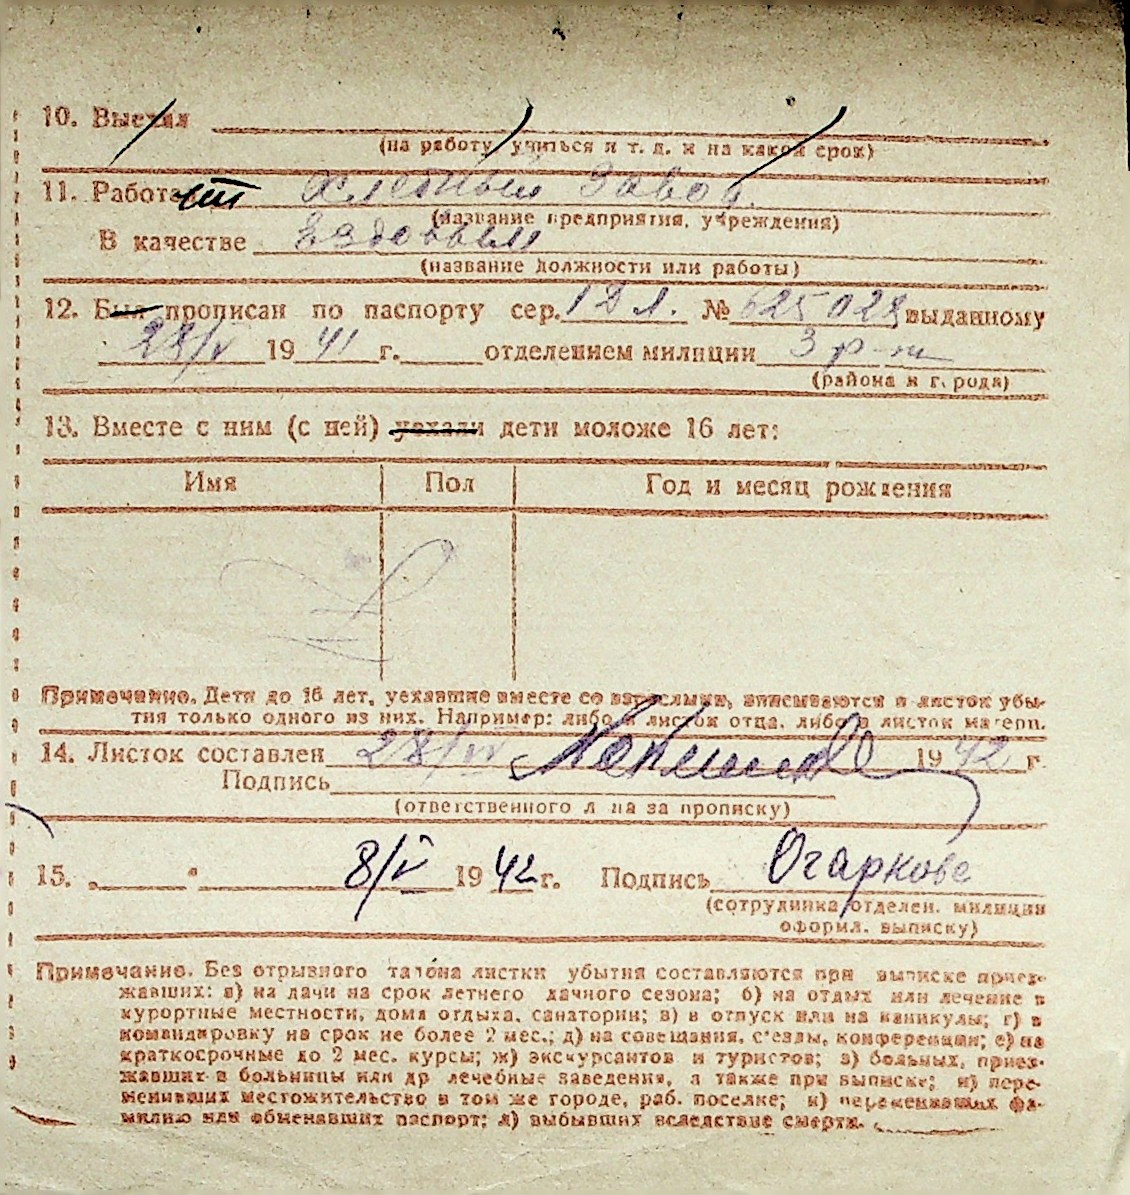 10. Выехал
(на работу, учиться и т. д. и на какой срок)
11. Работает Хлебный Завод.
(название предприятия, учреждения)
В качестве Ездовым
(название должности или работы)
12. Был прописан по паспорту сер. 1 Д Л. № 625 028 выданному
28/V 19 41 г. отделением милиции 3 р-м
(района и города)
13. Вместе с ним (с ней) уехали дети моложе 16 лет:
Имя Пол Год и месяц рождения
Примечание. Дети до 16 лет, уехавшие вместе со взрослыми, вписываются в листок убы-
тия только одного из них. Например: либо в листок отца, либо в листок матери.
14. Листок составлен 28/IV 19 42 г.
Подпись
(ответственного лица за прописку)
15. „ “ 8/V 19 42 г. Подпись Огаркова
(сотрудника отделен. милиции
оформл. выписку)
Примечание. Без отрывного талона листки убытия составляются при выписке приез-
жавших: а) на дачи на срок летнего дачного сезона; б) на отдых или лечение в
курортные местности, дома отдыха, санатории; в) в отпуск или на каникулы; г) в
командировку на срок не более 2 мес.; д) на совещания, с'езды, конференции; е) на
краткосрочные до 2 мес. курсы; ж) экскурсантов и туристов; з) больных, приез-
жавших в больницы или др лечебные заведения, а также при выписке; и) пере-
менивших местожительство в том же городе, раб. поселке; к) переменивших фа-
милию или обменавших паспорт; л) выбывших вследствие смерти.